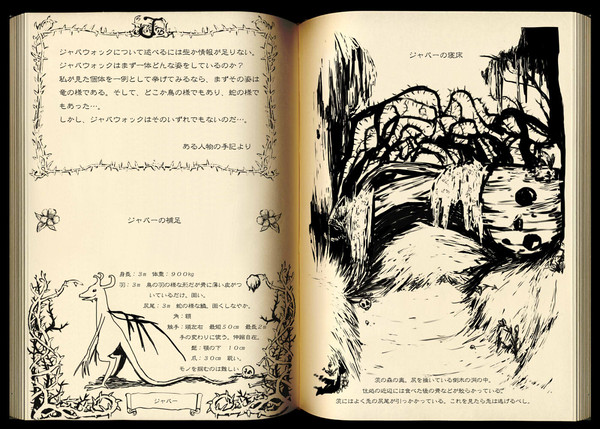 ジャバウォックについて述べるには些か情報が足りない。
ジャバウォックはまず一体どんな姿をしているのか？
私が見た個体を一例として挙げてみるなら、まずその姿は
竜の様である。そして、どこか鳥の様でもあり、蛇の様で
もあった…。
しかし、ジャバウォックはそのいずれでもないのだ…。
ある人物の手記より
ジャバーの補足
身長：３ｍ 体重：９００kg
羽：３ｍ 鳥の羽の様な形だが骨に薄い皮がつ
いているだけ。固い。
尻尾：３ｍ 蛇の様な鱗。固くしなやか。
角：額
触手：頭左右 最短５０cm 最長２m
手の変わりに使う。伸縮自在。
髭：顎の下 １０cm
爪：３０cm 鋭い。
モノを掴むのは難しい
ジャバー
ジャバーの寝床
茨の森の奥。尻を抜いている倒木の洞の中。
住処の近辺には食べた後の骨などが散らかっている。
茨にはよく先の尻尾が引っかかっている。これを見たら先は逃げるべし。